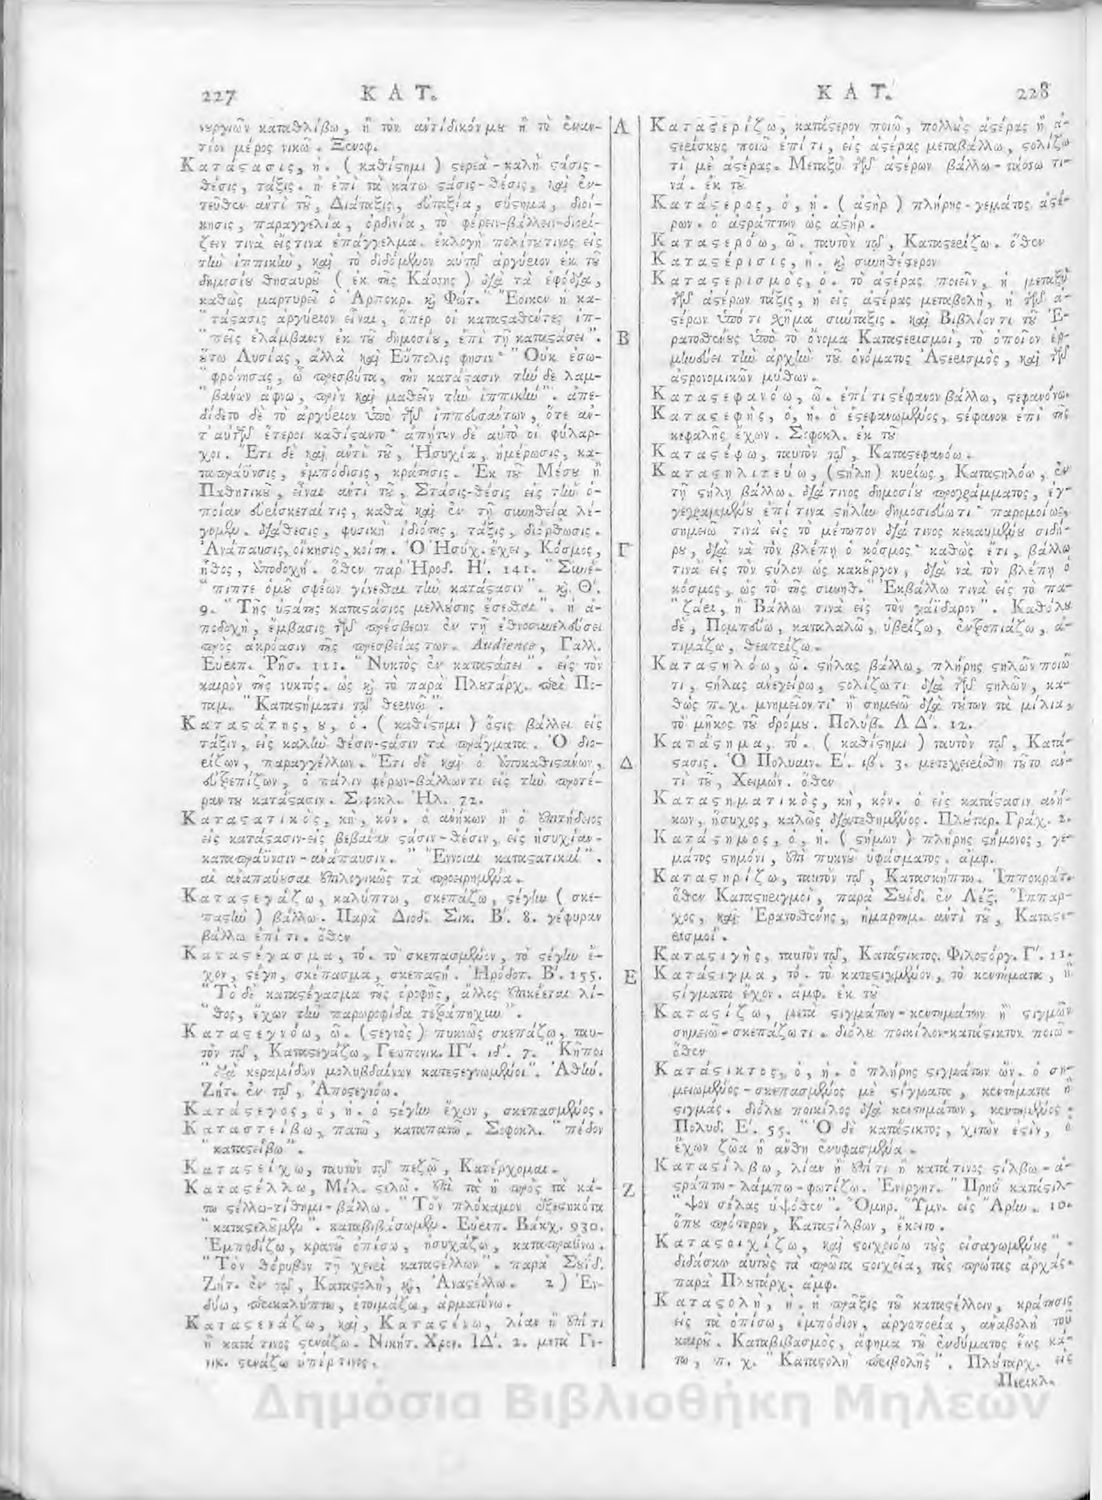 227 ΚΑΤ.
νυργιῶν καταθλίβω, ἢ τὸν ἀντίδικόν μου ἢ τὸ ἐναν-
τίον μέρος νικῶ. Ξενοφ.
Κατάστασις, ἡ. (καθίστημι) στερεὰ-καλὴ στάσις-
θέσις, τάξις. ἢ ἐπὶ τὰ κάτω στάσις-θέσις, καὶ ἐν-
τεῦθεν ἀντὶ τοῦ, Διάταξις, εὐταξία, σύστημα, διοί-
κησις, παραγγελία, ὀρδινία, τὸ φέρειν-βάλλειν-διορί-
ζειν τινὰ εἴς τινα ἐπάγγελμα. ἐκλογὴ πολίτου τινος εἰς
τὴν ἱππικὴν, καὶ τὸ διδόμενον αὐτῷ ἀργύριον ἐκ τοῦ
δημοσίου θησαυροῦ (ἐκ τῆς Κάσσης) διὰ τὰ ἐφόδια,
καθὼς μαρτυρεῖ ὁ Ἁρποκρ. καὶ Φώτ. "Ἔοικεν ἡ κα-
"τάστασις ἀργύριον εἶναι, ὅπερ οἱ κατασταθέντες ἱπ-
"πεῖς ἐλάμβανον ἐκ τοῦ δημοσίου, ἐπὶ τῇ καταστάσει".
οὕτω Λυσίας, ἀλλὰ καὶ Εὔπολις φησίν· "Οὐκ ἐσω-
"φρόνησας, ὦ πρεσβύτα, τὴν κατάστασιν τήνδε λαμ-
"βάνων ἄφνω, πρὶν καὶ μαθεῖν τὴν ἱππικήν". ἀπε-
δίδετο δὲ τὸ ἀργύριον ὑπὸ τῶν ἱππευσάντων, ὅτε ἀν-
τ' αὐτῶν ἕτεροι καθίσταντο· ἀπῄτουν δὲ αὐτὸ οἱ φύλαρ-
χοι. Ἔτι δὲ καὶ ἀντὶ τοῦ, Ἡσυχία, ἡμέρωσις, κα-
ταπράϋνσις, ἐμπόδισις, κράτησις. Ἐκ τοῦ Μέσου ἢ
Παθητικοῦ, εἶναι ἀντὶ τοῦ, Στάσις-θέσις εἰς τὴν ὁ-
ποίαν εὑρίσκεταί τις, καθὰ καὶ ἐν τῇ συνηθείᾳ λέ-
γομεν. διάθεσις, φυσικὴ ἰδιότης, τάξις, διόρθωσις.
Ἀνάπαυσις, οἴκησις, κοίτη. Ὁ Ἡσύχ. ἔχει, Κόσμος,
ἦθος, ὑποδοχή. ὅθεν παρ' Ἡροδ. Η'. 141. "Συνέ-
"πιπτε ὁμοῦ σφέων γίνεσθαι τὴν κατάστασιν". καὶ Θ'.
9. "Τῆς ὑστάτης καταστάσιος μελλούσης ἔσεσθαι". ἡ ἀ-
ποδοχὴ, ἔμβασις τῶν πρέσβεων ἐν τῇ ἐθνοσυνελεύσει
πρὸς ἀκρόασιν τῆς πρεσβείας των. Audience, Γαλλ.
Εὐριπ. Ῥῆσ. 111. "Νυκτὸς ἐν καταστάσει". εἰς τὸν
καιρὸν τῆς νυκτός. ὡς καὶ τὸ παρὰ Πλουτάρχ. περὶ Πο-
ταμ. "Καταστήματι τῷ θερινῷ".
Καταστάτης, ου, ὁ. (καθίστημι) ὅστις βάλλει εἰς
τάξιν, εἰς καλὴν θέσιν-στάσιν τὰ πράγματα. Ὁ διο-
ρίζων, παραγγέλλων. Ἔτι δὲ καὶ ὁ ἀποκαθιστάνων,
εὐτρεπίζων, ὁ πάλιν φέρων-βάλλων τι εἰς τὴν προτέ-
ραν του κατάστασιν. Σοφοκλ. Ἠλ. 72.
Καταστατικὸς, κὴ, κόν. ὁ ἀνήκων ἢ ὁ ἐπιτήδειος
εἰς κατάστασιν-εἰς βεβαίαν στάσιν-θέσιν, εἰς ἡσυχίαν-
καταπράϋνσιν-ἀνάπαυσιν. "Ἔννοιαι καταστατικαί".
αἱ ἀναπαύουσαι ἐπιλογικῶς τὰ προειρημένα.
Καταστεγάζω, καλύπτω, σκεπάζω, στέγην (σκέ-
παστὴν) βάλλω. Παρὰ Διοδ. Σικ. Β'. 8. γέφυραν
βάλλω ἐπί τι. ὅθεν
Καταστέγασμα, τό. τὸ σκεπασμένον, τὸ στέγην ἔ-
χον, στέγη, σκέπασμα, σκεπαστή. Ἡρόδοτ. Β'. 155.
"Τὸ δὲ καταστέγασμα τῆς ὀροφῆς, ἄλλος ἐπικέεται λί-
"θος, ἔχων τὴν παρωροφίδα τετράπηχυν".
Καταστεγνόω, ῶ. (στεγνὸς) πυκνῶς σκεπάζω, ταυ-
τὸν τῷ, Καταστεγάζω, Γεωπονικ. ΙΓ'. ιδ'. 7. "Κῆποι
"διὰ κεραμίδων μολυβδαίνων κατεστεγνωμένοι". Ἀθήν.
Ζήτ. ἐν τῷ, Ἀποστεγνόω.
Κατάστεγος, ὁ, ἡ. ὁ στέγην ἔχων, σκεπασμένος.
Καταστείβω, πατῶ, καταπατῶ. Σοφοκλ. "πέδον
"καταστείβω".
Καταστείχω, ταυτὸν τῷ πεζῷ, Κατέρχομαι.
Καταστέλλω, Μέλ. στελῶ. ἐπὶ τὰ ἢ πρὸς τὰ κά-
τω στέλλω-τίθημι-βάλλω. "Τὸν πλόκαμον ἐξεστηκότα
"καταστελοῦμεν". καταβιβάσωμεν. Εὐριπ. Βάκχ. 930.
Ἐμποδίζω, κρατῶ ὀπίσω, ἡσυχάζω, καταπραΰνω.
"Τὸν θόρυβον τῇ χειρὶ καταστέλλων". παρὰ Σουΐδ.
Ζήτ. ἐν τῷ, Καταστολὴ, καὶ, Ἀναστέλλω. 2) Ἐν-
δύω, περικαλύπτω, ἑτοιμάζω, ἁρματόνω.
Καταστενάζω, καὶ, Καταστένω, λίαν ἢ ἐπί τι
ἢ κατά τινος στενάζω. Νικήτ. Χρον. ΙΔ'. 2. μετὰ Γε-
νικ. στενάζω ὑπέρ τινος.
Α
Β
Γ
Δ
Ε
Ζ
ΚΑΤ. 228
Καταστερίζω, κατάστερον ποιῶ, πολλοὺς ἀστέρας ἢ ἀ-
στερίσκους ποιῶ ἐπί τι, εἰς ἀστέρας μεταβάλλω, στολίζω
τι μὲ ἀστέρας. Μεταξὺ τῶν ἀστέρων βάλλω-τάσσω τι-
νά. ἐκ τοῦ
Κατάστερος, ὁ, ἡ. (ἀστὴρ) πλήρης-γεμάτος ἀστέ-
ρων. ὁ ἀστράπτων ὡς ἀστήρ.
Καταστερόω, ῶ. ταυτὸν τῷ, Καταστερίζω. ὅθεν
Καταστέρισις, ἡ. καὶ συνηθέστερον
Καταστερισμὸς, ὁ. τὸ ἀστέρας ποιεῖν, ἡ μεταξὺ
τῶν ἀστέρων τάξις, ἡ εἰς ἀστέρας μεταβολὴ, ἡ τῶν ἀ-
στέρων ὑπό τι σχῆμα σύνταξις. καὶ Βιβλίον τι τοῦ Ἐ-
ρατοσθένους ὑπὸ τὸ ὄνομα Καταστερισμοὶ, τὸ ὁποῖον ἑρ-
μηνεύει τὴν ἀρχὴν τοῦ ὀνόματος Ἀστερισμὸς, καὶ τῶν
ἀστρονομικῶν μύθων.
Καταστεφανόω, ῶ. ἐπί τι στέφανον βάλλω, στεφανόνω.
Καταστεφὴς, ὁ, ἡ. ὁ ἐστεφανωμένος, στέφανον ἐπὶ τῆς
κεφαλῆς ἔχων. Σοφοκλ. ἐκ τοῦ
Καταστέφω, ταυτὸν τῷ, Καταστεφανόω.
Καταστηλιτεύω, (στήλη) κυρίως, Καταστηλόω, ἐν
τῇ στήλῃ βάλλω. διά τινος δημοσίου προγράμματος, ἐγ-
γεγραμμένου ἐπί τινα στήλην δημοσιεύω τι· παρομοίως,
σημειῶ τινὰ εἰς τὸ μέτωπον διά τινος κεκαυμένου σιδή-
ρου, διὰ νὰ τὸν βλέπῃ ὁ κόσμος· καθὼς ἔτι, βάλλω
τινὰ εἰς τὸν στύλον ὡς κακοῦργον, διὰ νὰ τὸν βλέπῃ ὁ
κόσμος, ὡς τὸ τῆς συνηθ. "Ἐκβάλλω τινὰ εἰς τὸ πα-
"ζάρι, ἢ Βάλλω τινὰ εἰς τὸν γαΐδαρον". Καθόλου
δὲ, Πομπεύω, καταλαλῶ, ὑβρίζω, ἐντροπιάζω, ἀ-
τιμάζω, θεατρίζω.
Καταστηλόω, ῶ. στήλας βάλλω, πλήρης στηλῶν ποιῶ
τι, στήλας ἀνεγείρω, στολίζω τι διὰ τῶν στηλῶν, κα-
θὼς π. χ. μνημεῖόν τι· ἢ σημειῶ διὰ τούτων τὰ μίλια,
τὸ μῆκος τοῦ δρόμου. Πολύβ. ΛΔ'. 12.
Κατάστημα, τό. (καθίστημι) ταυτὸν τῷ, Κατά-
στασις. Ὁ Πολυαιν. Ε'. ιβ'. 3. μετεχειρίσθη τοῦτο ἀν-
τὶ τοῦ, Χειμών. ὅθεν
Καταστηματικὸς, κὴ, κόν. ὁ εἰς κατάστασιν ἀνή-
κων, ἥσυχος, καλῶς διατεθημένος. Πλούταρ. Γράχ. 2.
Κατάστημος, ὁ, ἡ. (στήμων) πλήρης στήμονος, γε-
μάτος στημόνι, ἐπὶ πυκνοῦ ὑφάσματος. ἀμφ.
Καταστηρίζω, ταυτὸν τῷ, Κατασκήπτω. Ἱπποκράτ.
ὅθεν Καταστηριγμοὶ, παρὰ Σουΐδ. ἐν Λέξ. Ἵππαρ-
χος, καὶ Ἐρατοσθένης, ἡμαρτημ. ἀντὶ τοῦ, Καταστε-
ρισμοί.
Καταστιγὴς, ταυτὸν τῷ, Κατάστικτος. Φιλοστόργ. Γ'. 11.
Κατάστιγμα, τό. τὸ κατεστιγμένον, τὸ κεντήματα, ἢ
στίγματα ἔχον. ἀμφ. ἐκ τοῦ
Καταστίζω, μετὰ στιγμάτων-κεντημάτων ἢ στιγμῶν
σημειῶ-σκεπάζω τι. διόλου ποικίλον-κατάστικτον ποιῶ.
ὅθεν
Κατάστικτος, ὁ, ἡ. ὁ πλήρης στιγμάτων ὤν. ὁ ση-
μειωμένος-σκεπασμένος μὲ στίγματα, κεντήματα ἢ
στιγμάς. διόλου ποικίλος διὰ κεντημάτων, κεντημένος.
Πολυδ. Ε'. 55. "Ὁ δὲ κατάστικτος, χιτών ἐστιν, ὁ
ἔχων ζῶα ἢ ἄνθη ἐνυφασμένα.
Καταστίλβω, λίαν ἢ ἐπί τι ἢ κατά τινος στίλβω-ἀ-
στράπτω-λάμπω-φωτίζω. Ἐνεργητ. "Πρηῢ καταστίλ-
"βον σέλας ὑψόθεν". Ὅμηρ. Ὕμν. εἰς Ἄρην. 10.
ὅπου πρότερον, Καταστίλβων, ἔκειτο.
Καταστοιχίζω, καὶ στοιχειόω τοὺς εἰσαγωμένους"
διδάσκω αὐτοὺς τὰ πρῶτα στοιχεῖα, τὰς πρώτας ἀρχάς.
παρὰ Πλουτάρχ. ἀμφ.
Καταστολὴ, ἡ. ἡ πρᾶξις τοῦ καταστέλλειν, κράτησις
εἰς τὰ ὀπίσω, ἐμπόδιον, ἀργοπορία, ἀναβολὴ τοῦ
καιροῦ. Καταβιβασμὸς, ἄφημα τοῦ ἐνδύματος ἕως κά-
τω, π. χ. "Καταστολὴ περιβολῆς". Πλούταρχ. εἰς
Περικλ.
Δημόσια Βιβλιοθήκη Μηλεών